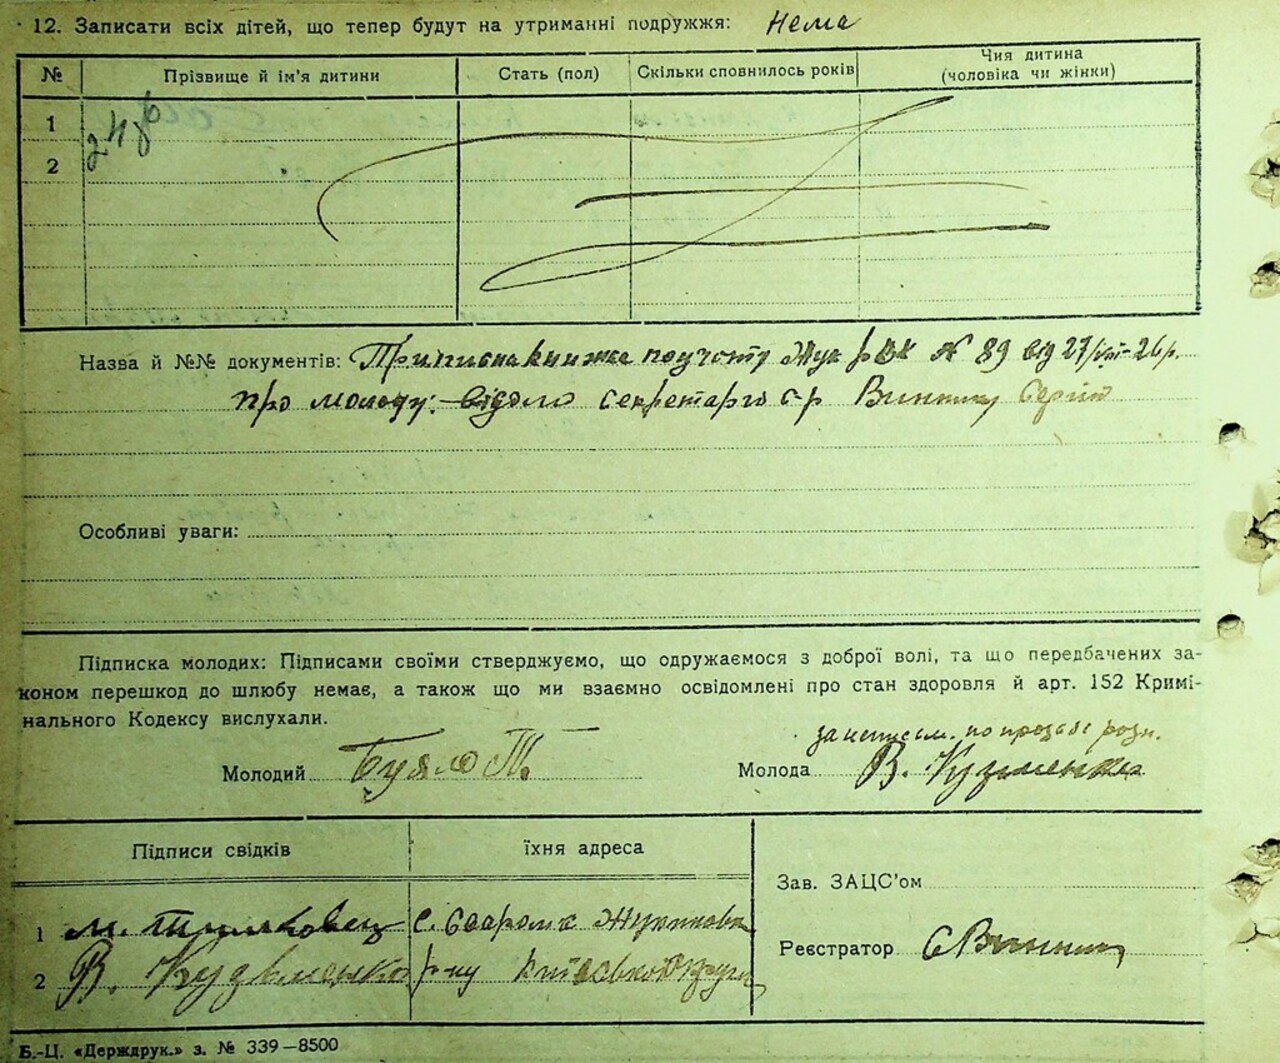 12. Записати всіх дітей, що тепер будут на утриманні подружжя: Нема
№ Прізвище й ім'я дитини Стать (пол) Скільки сповнилось років Чия дитина (чоловіка чи жінки)
1
2
Назва й №№ документів: Приписна книжка по учоту Жук рВК № 89 від 27/VIII-26 р.
про молоду: відомо секретарю с-р Виннику Сергію
Особливі уваги:
Підписка молодих: Підписами своїми стверджуємо, що одружаємося з доброї волі, та що передбачених за-
коном перешкод до шлюбу немає, а також що ми взаємно освідомлені про стан здоровля й арт. 152 Кримі-
нального Кодексу вислухали.
за неписьм. по прозьбі розп.
Молодий Буяло Т. Молода В. Кузьменко
Підписи свідків їхня адреса
Зав. ЗАЦС'ом
1 М. с.
2 В. Кузьменко р-ну Київської округи
Реєстратор СВинник
Б.-Ц. «Держдрук.» з. № 339—8500